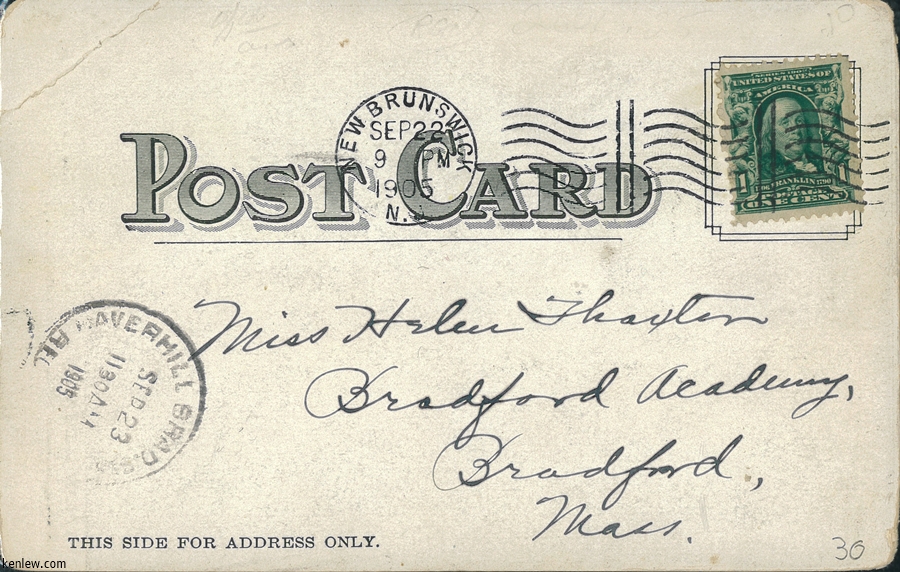 NEW BRUNSWICK
SEP 22
9 PM
1905
N.J.
SERIES 1902
UNITED STATES OF
AMERICA
FRANKLIN 1790
1 1
POSTAGE
ONE CENT
POST CARD
Miss Helen Thaxter
Bradford Academy,
Bradford,
Mass.
HAVERHILL BRAD.
SEP 23
1130 AM
1905
REC
THIS SIDE FOR ADDRESS ONLY.
30
kenlew.com